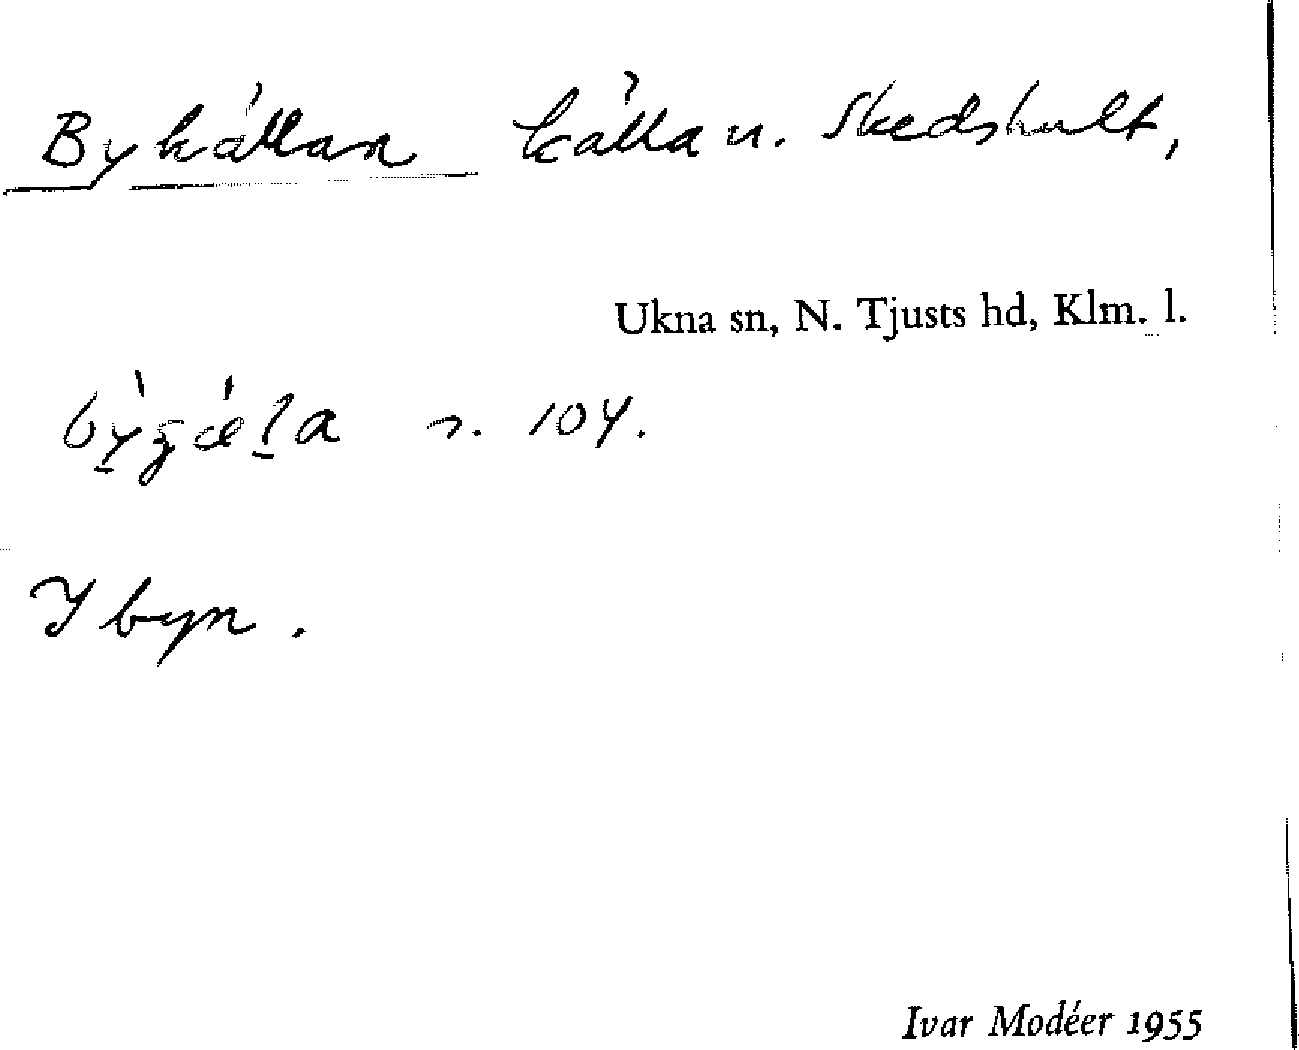 Bykällan källa u. Skedshult,
Ukna sn, N. Tjusts hd, Klm. l.
104.
I byn.
Ivar Modéer 1955